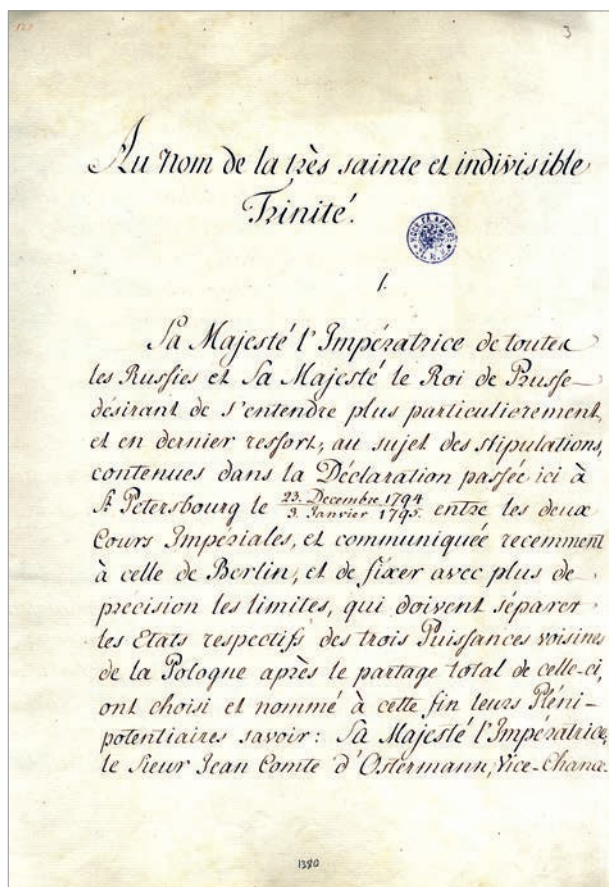 3
Au Nom de la très sainte et indivisible
Trinité.
1.
Sa Majesté l'Impératrice de toutes
les Russies et Sa Majesté le Roi de Prusse
désirant de s'entendre plus particulierement,
et en dernier ressort, au sujet des stipulations,
contenues dans la Déclaration passée ici à
St Petersbourg le 23. Decembre 1794 / 3. Janvier 1795. entre les deux
Cours Impériales, et communiquée recemment
à celle de Berlin, et de fixer avec plus de
précision les limites, qui doivent séparer
les Etats respectifs des trois Puissances voisines
de la Pologne après le partage total de celle-ci,
ont choisi et nommé à cette fin leurs Pléni-
potentiaires savoir: Sa Majesté l'Impératrice,
le Sieur Jean Comte d'Ostermann, Vice-Chance-
1380